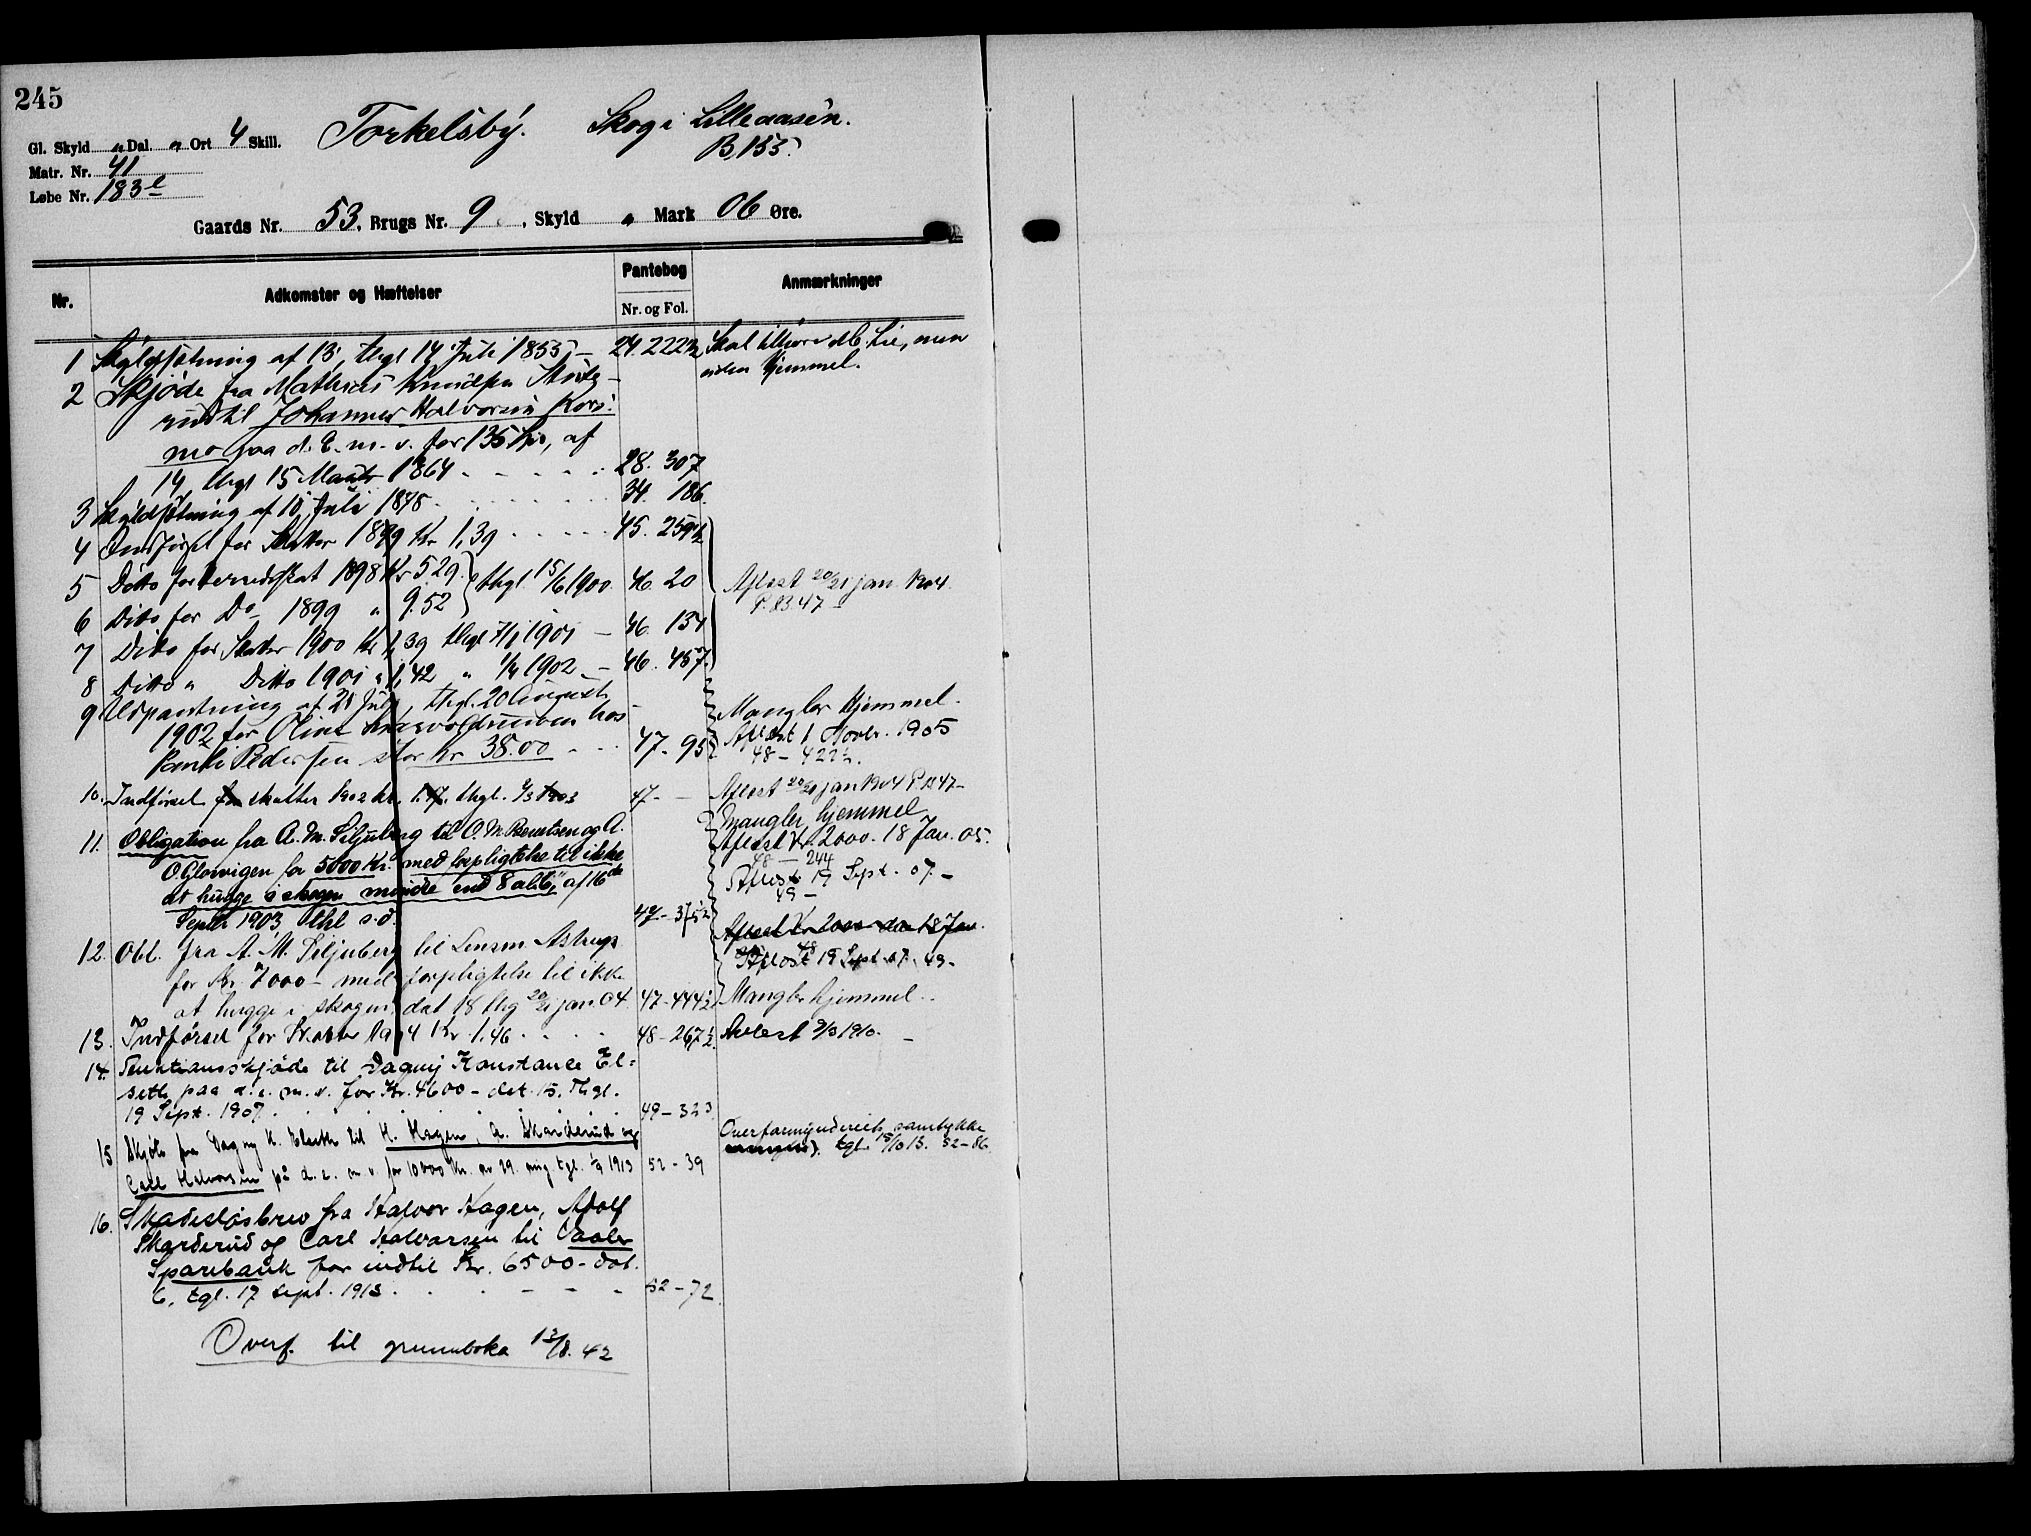 245
Gl. Skyld " Dal. " Ort 4 Skill. Torkelsby. Skog i Lilleaasen.
B. 155.
Matr. Nr. 41
Løbe Nr. 183 e
Gaards Nr. 53, Brugs Nr. 9, Skyld " Mark 06 Øre.
Nr. Adkomster og Hæftelser Pantebog Anmærkninger
Nr. og Fol.
1 Skyldsætning af 13, thgl 14 Juli 1855 — 24. 222 Skal tilhøre Lie, men
uden Hjemmel.
2 Skjøde fra Mathias Knudsen
rud til Johannes Halvorsen Kors:
mo paa d. E. m. v. for 135 af
14, thgl 15 Marts 1864 28. 307
3 Skyldsætning af 10 Juli 1878 34. 186.
4 Indførsel for Skatter 1899 Kr 1,39 45. 259½
5 Ditto for Herredsskat 1898 Kr 5.29 thgl 15/6 1900. 46. 20 Aflæst 20/21 jan. 1904.
P. B. 47 —
6 Ditto for Do 1899 " 9.52
7 Ditto for Skatter 1900 Kr 1,39 thgl 7/1 1901 — 46. 134
8 Ditto " Ditto 1901 " 1,42 " 1902 — 46. 457.
9 Udpantning af 21 Juli, thgl. 20 August
1902 for Oline hos
Pedersen stor kr. 38.00 47. 95 Mangler Hjemmel.
Aflæst 1 Novbr. 1905
48 – 422½.
10. Indførsel for skatter 1902 kr. 1.47. thgl. 1903 47 — Aflæst 20/21 jan 1904 P. B 47 –
11. Obligation fra A. M. Siljuberg til O. M. Berntsen og A. Mangler hjemmel
O. Glorvigen for 5000 Kr. med forpligtelse til ikke Aflæst Kr. 2000. 18 Jan. 05.
48 — 244
at hugge i skogen mindre end 8 al. 6", af 16de Aflæst 19 Sept. 07. –
49 –
Septbr 1903, thl s. d. 47 – 375½
Aflæst Kr 2000 den 18 Jan.
12. Obl. fra A. M. Siljuberg til Lensm. Astrup
for Kr. 7000 – med forpligtelse til ikke Aflæst 19 Sept. 07. 49 –
at hugge i skogen, dat 18 thg 20/21 jan. 04. 47 – 444½ Mangler hjemmel.
13. Indførsel for Skatter 1904 Kr. 1.46 48 – 267½ Avlæst 9/3 1910. –
14. Auktionsskjøde til Dagny Konstance El=
seth paa d. e. m. v. for Kr. 4600 – dat. 15. Thgl.
19 Sept. 1907. 49 – 323
15 Skjøte fra Dagny K. Elseth til H. Hagen, A. Skarderud og Overformynderiets samtykke
tgl. 15/10 13. 52 – 86
Carl Halvorsen på d. e. m v. for 10000 Kr. av 29. aug tgl. 1/9 1913 52 – 39
16. Skadesløsbrev fra Halvor Hagen, Adolf
Skarderud og Carl Halvorsen til Vaaler
Sparebank for indtil Kr. 6500 – dat.
6, tgl. 17 sept. 1913. 52 – 72
Overf. til grunnboka 13/8. 42